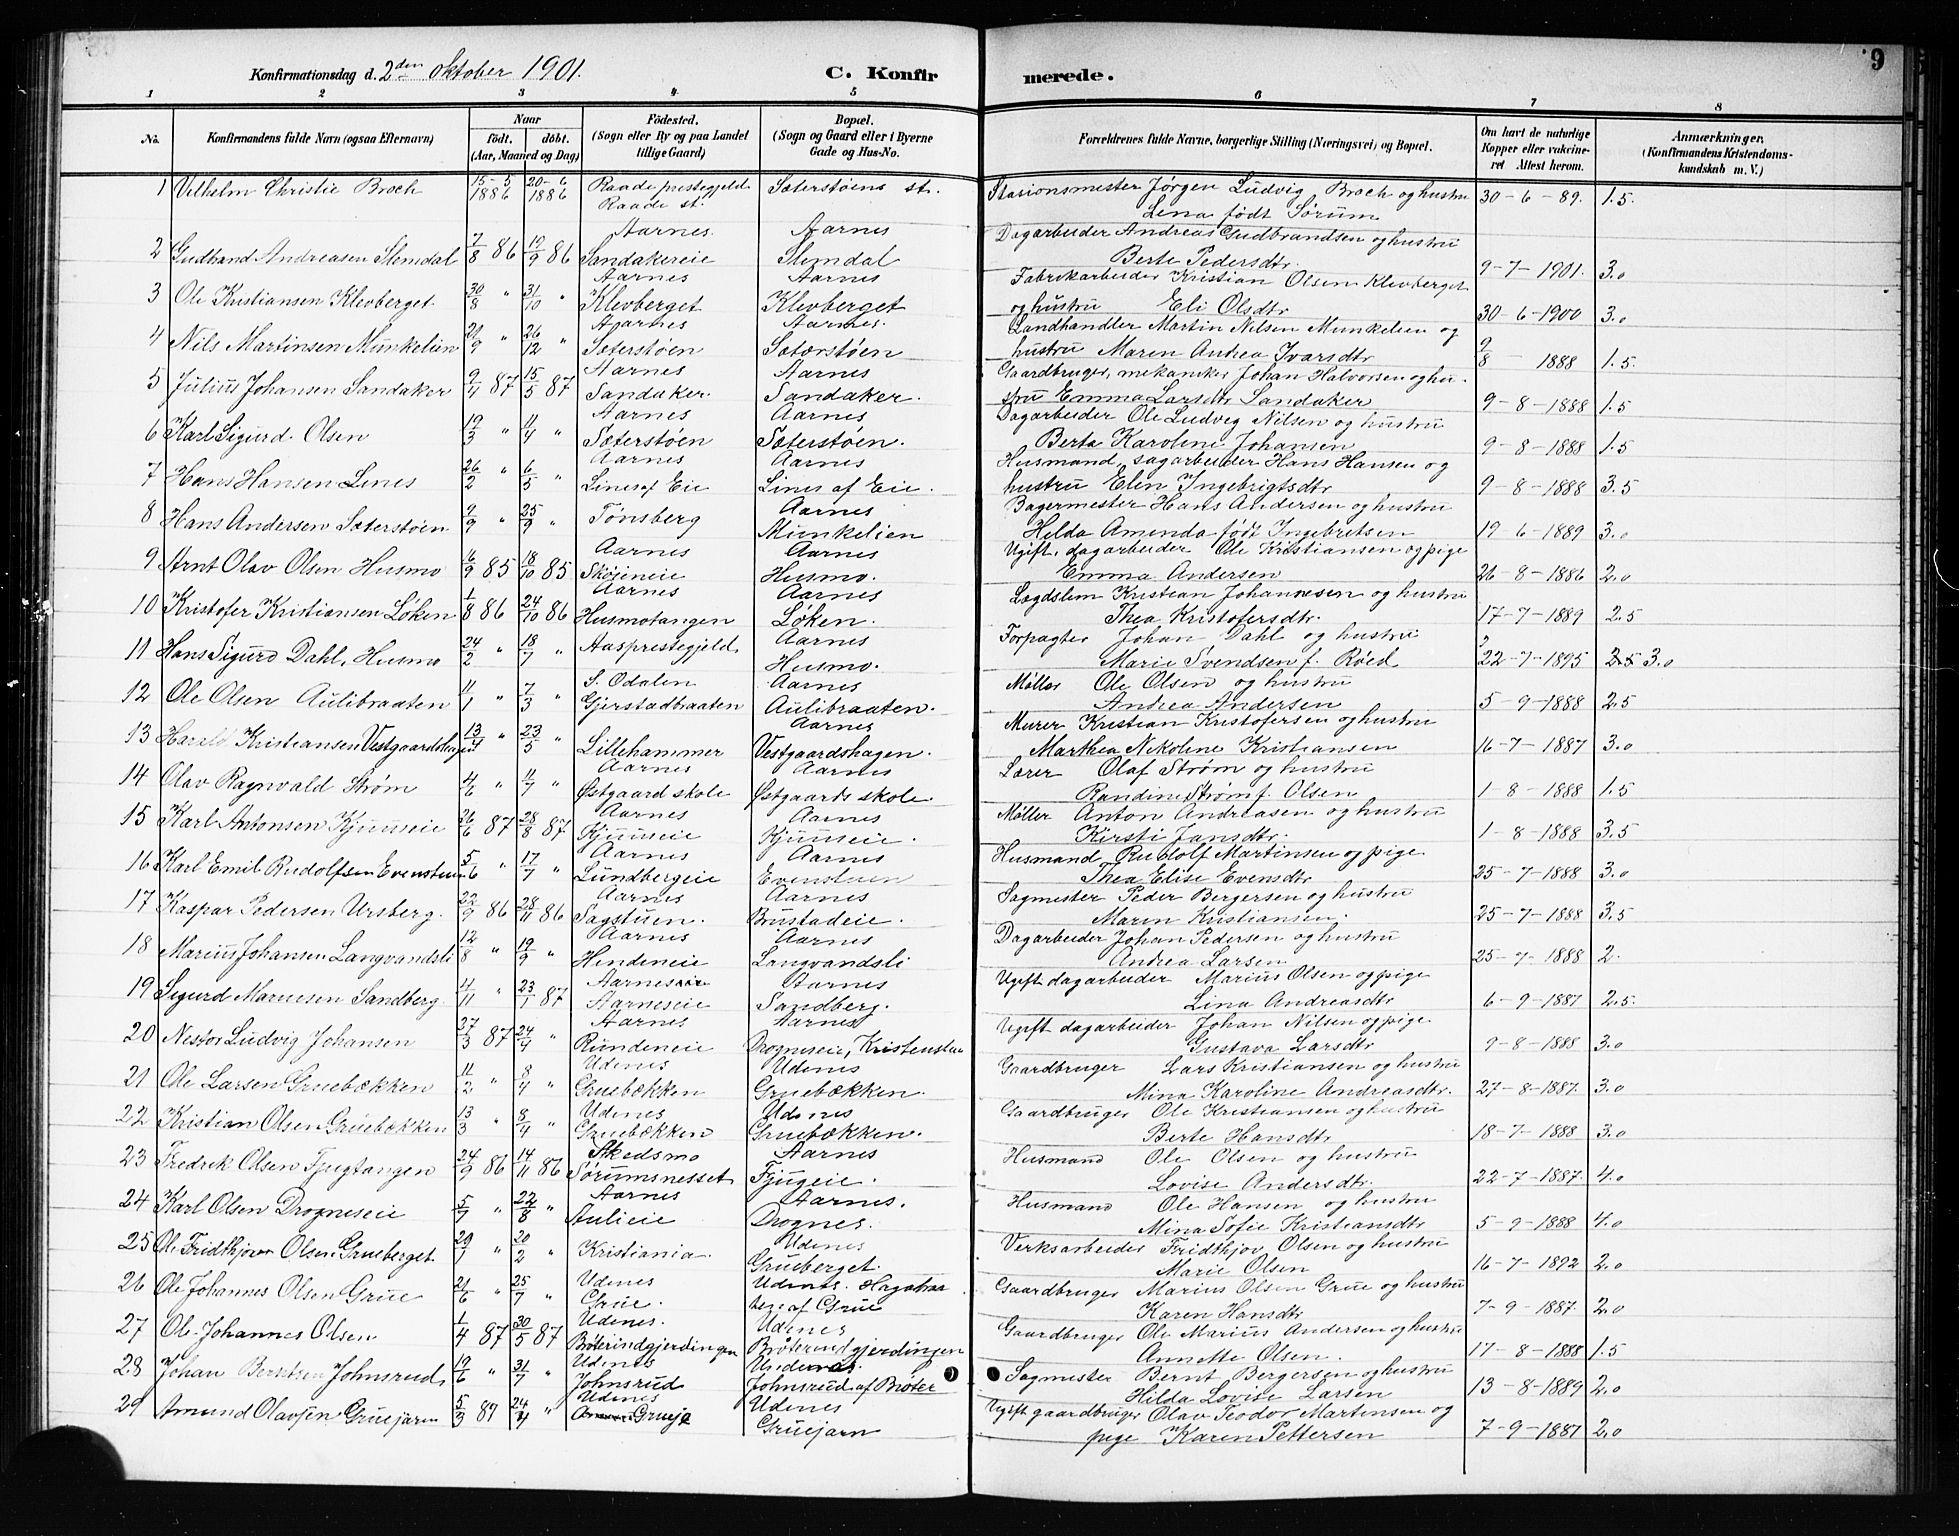 9
Konfirmationsdag d. 2den Oktober 1901. C. Konfirmerede.
1 2 3 4 5 6 7 8
No. Konfirmandens fulde Navn (ogsaa Efternavn) Naar født, døbt. (Aar, Maaned og Dag) Fødested. (Sogn eller By og paa Landet tillige Gaard) Bopæl. (Sogn og Gaard eller i Byerne Gade og Hus-No. Forældrenes fulde Navne, borgerlige Stilling (Næringsvei) og Bopæl. Om havt de naturlige Kopper eller vakcineret Attest herom. Anmærkninger, (Konfirmandens Kristendomskundskab m. V.)
1 Vilhelm Christie Broch 15-5 1886 20-6 1886 Raade prestegjeld Raade st. Sæterstøens st. Stasionsmester Jørgen Ludvig Broch og hustru Lena født Sørum 30-6-89. 1.5.
2 Gudbrand Andreasen Slemdal 7/8 86 19/9 86 Aarnes. Sandakereie Aarnes Slemdal Dagarbeider Andreas Gudbrandsen og hustru Berte Pedersdtr. 9-7-1901. 3.0
3 Ole Kristiansen Klevberget 30/8 " 31/10 " Aarnes Klevberget Aarnes Klevberget Fabrikarbeider Kristian Olsen Klevberget og hustru Eli Olsdtr 30-6-1900 3.0
4 Nils Martinsen Munkelien 21/9 " 26/12 " Aarnes Sæterstøen Aarnes. Sæterstøen Landhandler Martin Nilsen Munkelien og hustru Maren Andrea Ivarsdtr 9/8 - 1888 1.5.
5 Julius Johansen Sandaker 9/4 87 15/5 87 Aarnes Sandaker. Aarnes Sandaker. Gaardbruger, mekaniker Johan Halvorsen og hustru Emma Larsdtr Sandaker 9-8-1888 1.5
6 Karl Sigurd Olsen 19/3 " 11/4 " Aarnes Sæterstøen Aarnes Sæterstøen. Dagarbeider Ole Ludvig Nilsen og hustru Berta Karoline Johansen 9-8-1888 1.5
7 Hans Hansen Lines 26/2 " 6/5 " Aarnes Lines af Eie Aarnes Lines af Eie. Husmand, sagarbeider Hans Hansen og hustru Elin Ingebrigtsdtr 9-8-1888 3.5
8 Hans Andersen Sæterstøen 9/9 " 25/9 " Tønsberg Aarnes Munkelien Bagermester Hans Andersen og hustru Hilda Amenda født Ingebretsen 19-6-1889 3.0
9 Arnt Olav Olsen Husmo 16/9 85 18/10 85 Aarnes Skøieneie Aarnes Husmo. Ugift, dagarbeider Ole Kristiansen og pige Emma Andersen 26-8-1886 2.0
10 Kristofer Kristiansen Løken 1/8 86 24/10 86 Aarnes Husmotangen Aarnes Løken. Lægdslem Kristian Johannesen og hustru Thea Kristofersdtr. 17-7-1889 2.5
11 Hans Sigurd Dahl, Husmo 24/2 " 18/7 " Aas prestegjeld Aarnes Husmo. Forpagter Johan Dahl og hustru Marie Svendsen f. Røed 22-7-1895 2.5 3.0
12 Ole Olsen Aulibraaten 11/1 " 7/3 " S. Odalen Gjerstadbraaten Aarnes Aulibraaten. Møller Ole Olsen og hustru Andrea Andersen 5-9-1888 2.5
13 Harald Kristiansen Vestgaardshagen 13/4 " 23/5 " Lillehammer Aarnes Vestgaardshagen. Murer Kristian Kristofersen og hustru Marthea Nikoline Kristiansen 16-7-1887 3.0
14 Olav Ragnvald Strøm 4/6 " 11/7 " Aarnes Østgaard skole Aarnes Østgaards skole. Lærer Olaf Strøm og hustru Randine Strøm f. Olsen 1-8-1888 1.5
15 Karl Antonsen Kjuuseie 26/6 87 28/8 87 Aarnes Kjuuseie Aarnes Kjuuseie. Møller Anton Andreasen og hustru Kirsti Jansdtr. 1-8-1888 3.5
16 Karl Emil Rudolfsen Evenstuen 5/6 " 17/7 " Aarnes Lundbergeie Aarnes Evenstuen Husmand Rudolf Martinsen og pige Thea Elise Evensdtr 25-7-1888 3.0
17 Kaspar Pedersen Ursberg. 22/9 86 28/11 86 Aarnes Sagstuen. Aarnes Brustadeie. Sagmester Peder Bergersen og hustru Maren Kristiansen. 25-7-1888 3.5
18 Marius Johansen Langvandsli 12/8 " 19/9 " Aarnes Hindeneie Aarnes Langvandsli Dagarbeider Johan Pedersen og hustru Andrea Larsen 25-7-1888 2.
19 Sigurd Mariusen Sandberg 4/11 " 23/1 87 Aarnes Aarneseie Aarnes Sandberg. Ugift dagarbeider Marius Olsen og pige Lina Andreasdtr 6-9-1887 2.5.
20 Nestor Ludvig Johansen 27/3 87 24/4 Aarnes Rundeneie Aarnes Drogneseie, Kristenstuen Ugift dagarbeider Johan Nilsen og pige Gustava Larsdtr 9-8-1888 3.0
21 Ole Larsen Gruebækken 11/2 " 8/4 " Udenes Gruebækken Udenes Gruebækken. Gaardbruger Lars Kristiansen og hustru Mina Karoline Andreasdtr. 27-8-1887. 3.0
22 Kristian Olsen Gruebækken 13/3 " 8/4 " Udenes Gruebækken Udenes Gruebækken. Gaardbruger Ole Kristiansen og hustru Berte Hansdtr 18-7-1888 3.0
23 Fredrik Olsen Fjugtangen 24/9 86 14/11 86 Skedsmo Sørumsnesset Aarnes Fjugeie. Husmand Ole Olsen og hustru Lovise Andersdtr. 22-7-1887. 4.0
24 Karl Olsen Drogneseie 5/7 " 22/8 " Aarnes Aulieie Aarnes. Drognes. Husmand Ole Hansen og hustru Mina Sofie Kristiansdtr 5-9-1888 4.0
25 Ole Fridthjov Olsen Grueberget. 29/1 " 20/2 " Kristiania. Udenes Grueberget. Verksarbeider Fridthjov Olsen og hustru Marie Olsen 16-7-1892 2.0
26 Ole Johannes Olsen Grue 21/6 " 25/7 " Udenes Grue. Udenes. af Grue Gaardbruger Marius Olsen Grue og hustru Karen Hansdtr 7-9-1887. 2.0
27 Ole Johannes Olsen 1/4 87 30/5 87 Udenes. Brøterindgjerdingen Udenes Brøterindgjerdingen Gaardbruger Ole Marius Andersen og hustru Annette Olsen. 17-8-1888 1.5
28 Johan Berntsen Johnsrud 19/6 " 31/7 " Udenes Johnsrud Udenes Johnsrud af Brøter Sagmester Bernt Bergersen og hustru Hilda Lovise Larsen 13-8-1889 2.0
29 Amund Olavsen Gruejarn 5/3 87 24/4 " Udenes Grueje Udenes Gruejarn Ugift gaardbruger Olav Teodor Martinsen og pige Karen Pettersen 7-9-1887 2.0